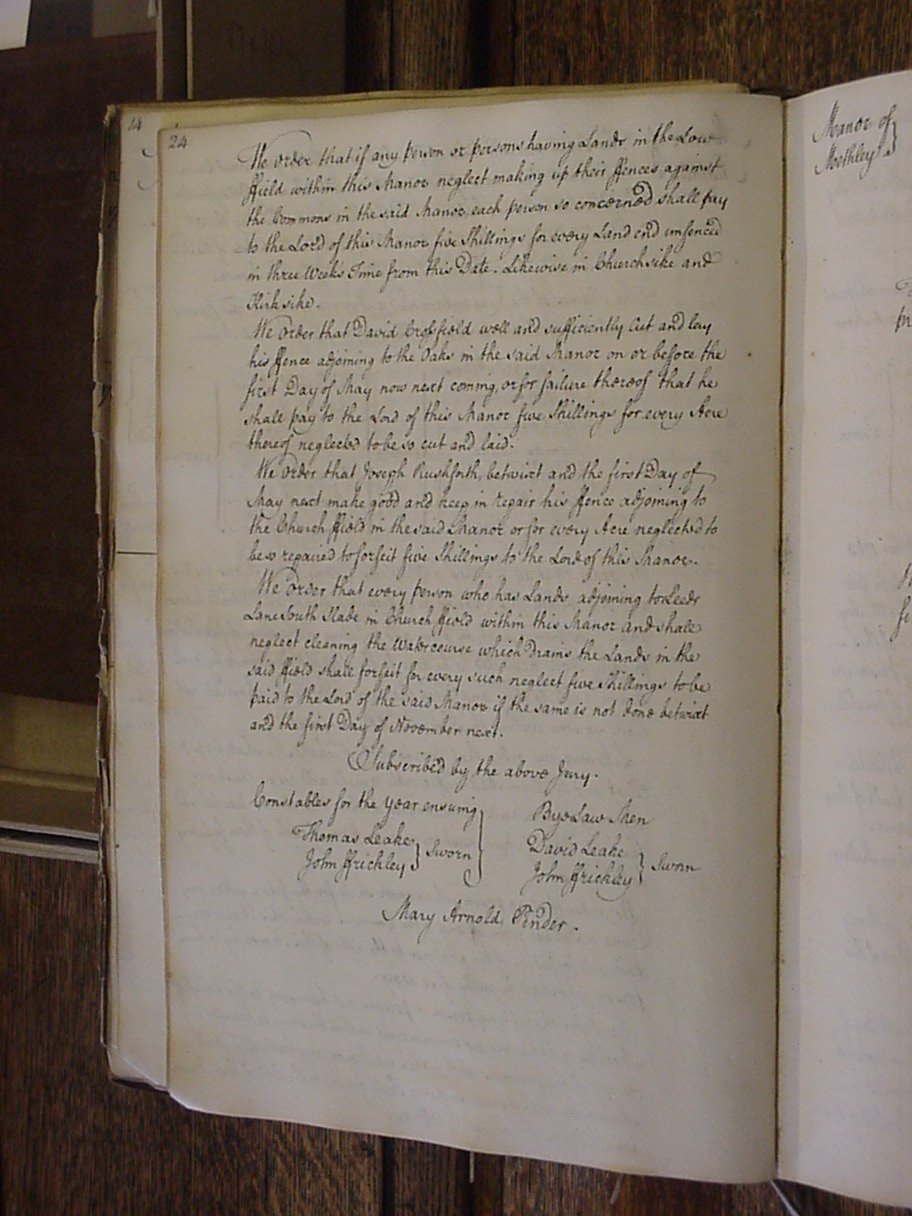 24
24
We order that if any person or persons having Lands in the Low
ffield within this Manor neglect making up their ffences against
the Commons in the said Manor, each person so concerned shall pay
to the Lord of this Manor five Shillings for every Land end unfenced
in three Weeks Time from this Date. Likewise in Churchsike and
Kirksike.
We order that David Crossfield well and sufficiently Cut and lay
his ffence adjoining to the Oaks in the said Manor on or before the
first Day of May now next coming, or for failure thereof that he
shall pay to the Lord of this Manor five Shillings for every Acre
thereof neglected to be so cut and laid.
We order that Joseph Rushforth, betwixt and the first Day of
May next make good and keep in repair his ffence adjoining to
the Church ffield in the said Manor or for every Acre neglected to
be so repaired to forfeit five Shillings to the Lord of this Manor.
We order that every person who has Lands adjoining to Leeds
Lane South Slade in Church ffield within this Manor and shall
neglect cleaning the Watercourse which Drains the Lands in the
said ffield shall forfeit for every such neglect five Shillings to be
paid to the Lord of the said Manor if the same is not done betwixt
and the first Day of November next.
Subscribed by the above Jury.
Constables for the Year ensuing
Thomas Leake
John ffrickley
Sworn
Bye Law Men
David Leake
John ffrickley
Sworn
Mary Arnold Pinder.
Manor of
Methley